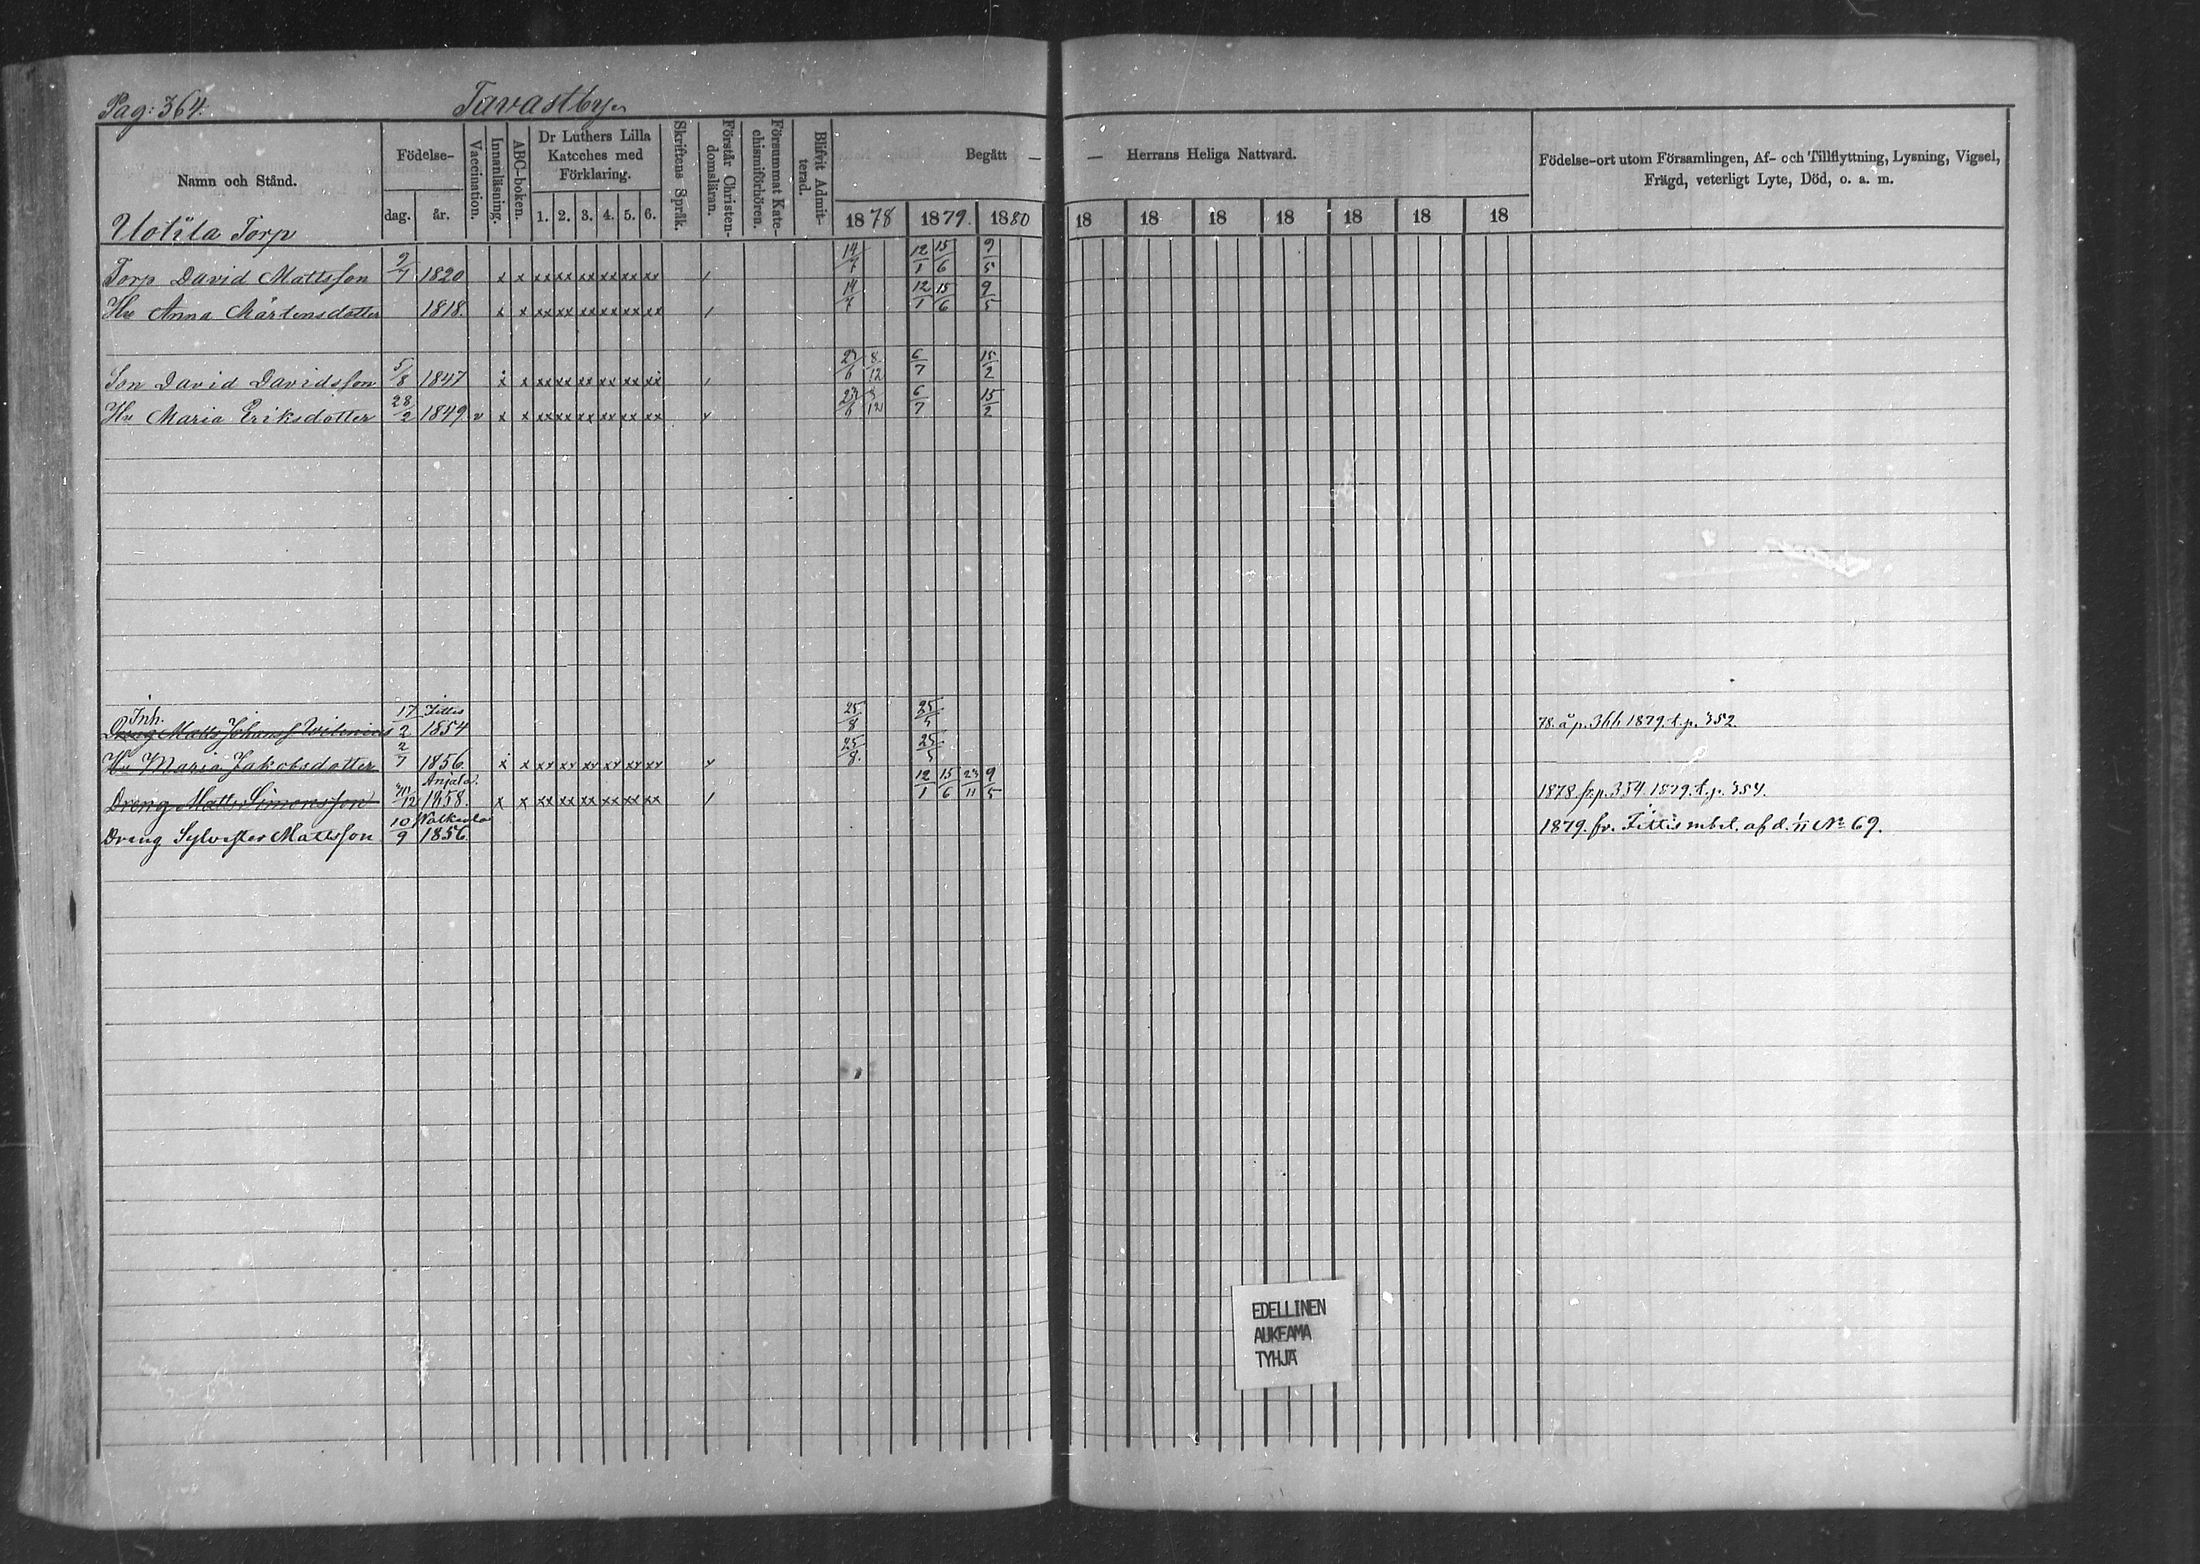 Pag: 364.
Tavastby
Namn och Stånd.
Födelse-
dag.
år.
Vaccination.
Innanläsning.
ABC-boken.
Dr Luthers Lilla
Kateches med
Förklaring.
1. 2. 3. 4. 5. 6.
Skriftens Språk.
Förstår Christen-
domsläran.
Försummat Kate-
chismiförhören.
Blifvit Admit-
terad.
Begått —
— Herrans Heliga Nattvard.
1878 1879. 1880 18 18 18 18 18 18 18
Födelse-ort utom Församlingen, Af- och Tillflyttning, Lysning, Vigsel,
Frägd, veterligt Lyte, Död, o. a. m.
Uotila Torp
Torp David Mattsson 9/7 1820 x x xx xx xx xx xx xx 14/7 12/1 15/6 9/5
Hu Anna Mårtensdotter 1818. x x xx xx xx xx xx xx 14/7 12/1 15/6 9/5
Son David Davidsson 5/8 1847 x x xx xx xx xx xx xx 23/6 8/12 6/7 15/2
Hu Maria Eriksdotter 28/2 1849 v x x xx xx xx xx xx xx v 23/6 8/12 6/7 15/2
Inh.
Dreng Matts Johansf 17/2 Sittis 1854 25/8 25/5 78. å p. 366 1879. t. p. 352.
Hu Maria Jakobsdotter 2/7 1856. x x xx xx xx xx xx xx v 25/8. 25/5
Dreng Matts Simonsson /12 Anjala. 1858. x x xx xx xx xx xx xx 12/1 15/6 23/11 9/5 1878 fr. p. 354 1879. t. p. 354.
Dreng Sylvester Mattsson 10/9 Walkeala 1856. 1879. fr. Sittis m bet. af d. 1/11 No 69.
EDELLINEN
AUKEAMA
TYHJÄ